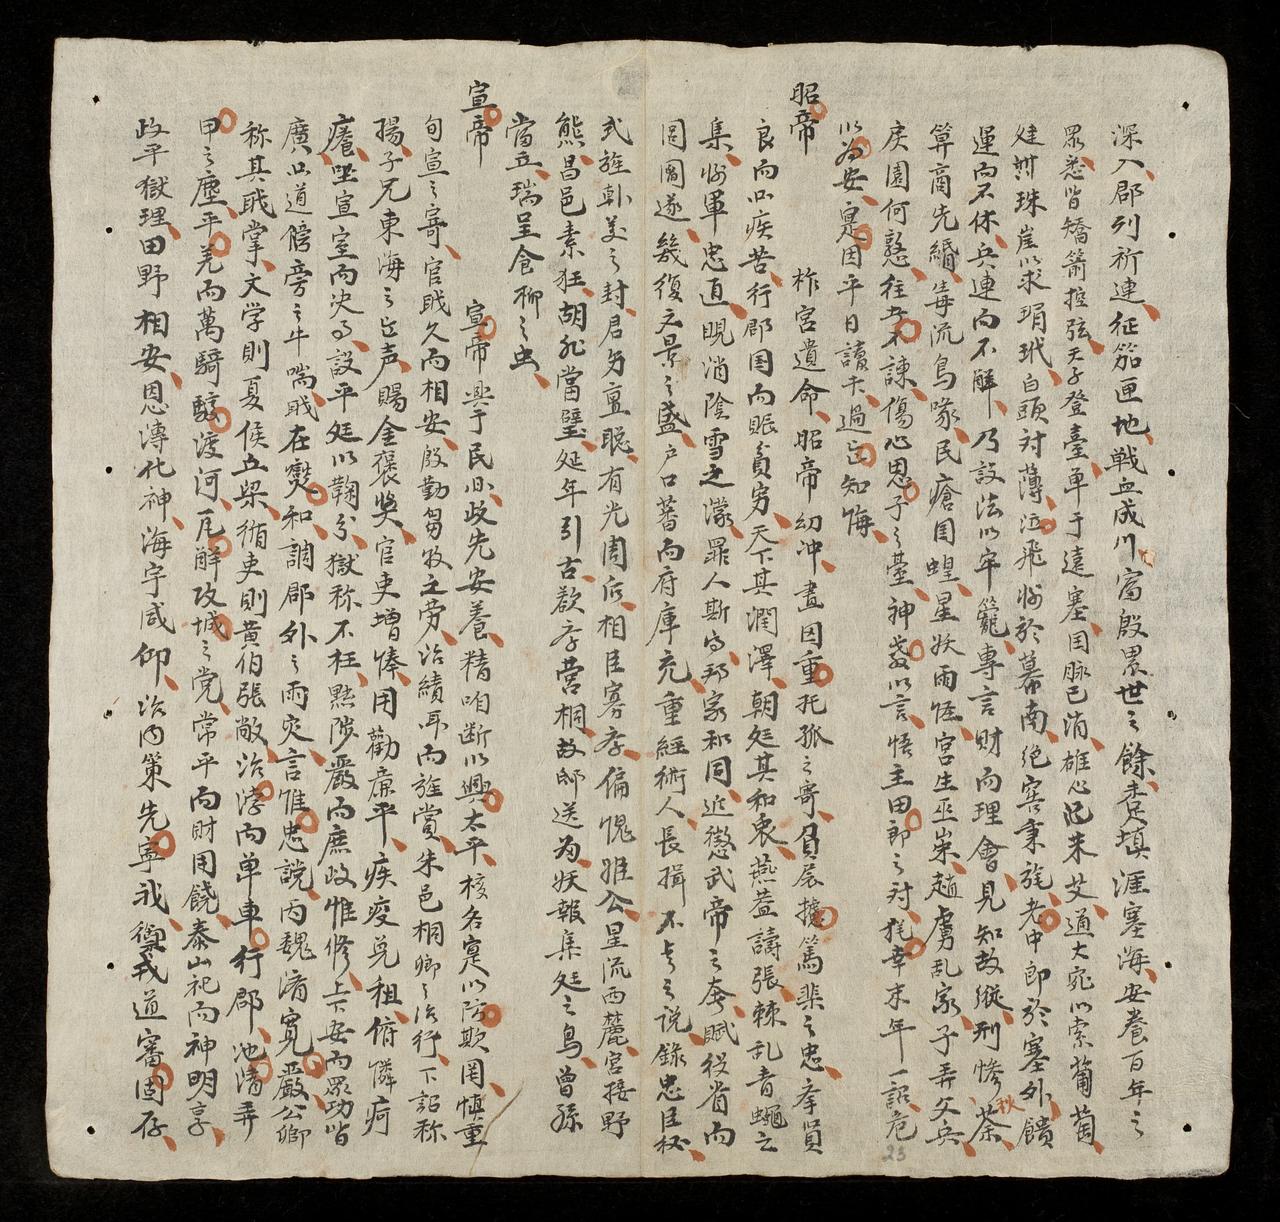 深入郡列祈連征笳匝地戦血成川富殷累世之餘走填漄塞海安養百年之
眾悉皆矯箭控弦天子登臺单于遠塞国脉已消雄心迄未艾通大宛以索葡萄
建艸珠崖以求瑁玳白頭対薄泣飛於幕南絶寞秉旄老中郎於塞外饋
運而不休兵連而不解乃設法以牢籠專言財而理會見知故縱刑惨荼
秋
算商先緡毒流鳥喙民瘡国蝗星妖雨恠宫生巫祟趙虜乱家子弄父兵
戾園何憝往者不諫傷心思子之臺神悲以言悟主田郎之対耄幸末年一詔危
以為安寔因平日讀书過而知悔
昭帝
柞宮遺命昭帝幼冲晝因重托孤之寄負扆擄篤棐之忠孝員
良而以疾苦行郡国而賑貧穷天下其潤澤朝廷其和衷燕蓋譸張棘乱青蠅之
集将軍忠直晛消陰雪之濛罪人斯得邦家和同近懲武帝之奢賦役省而
囹圄遂幾復文景之盛户口蕃而府庫充重經術人長揖不疑之説錄忠臣秘
式旌韩义之封君穷亶聪有光周后相臣寡存偏愧姬公星流西麓宮接野
熊昌邑素狂胡非當璧延年引古欲存营桐故邸送為妖報集廷之鳥曾孫
當立瑞呈食柳之虫
宣帝
宣帝興于民间政先安養精咱断以興太平核名寔以防欺罔慎重
旬宣之寄官职久而相安殷勤芻牧之劳治績平而旌賞朱邑桐鄉之治行下詔称
揚子兄東海之㱕声賜金褒奬官吏增俸用勸廉平疾疫免租俯隣疴
癢坐宣室而决事設平廷以鞫獄称不枉黜陟嚴而庶政惟修上下安而眾功皆
廣以道傍旁之牛喘职在爕和調郡外之雨灾言惟忠説丙魏濟寛嚴公卿
称其职掌文学則夏侯丘梁循吏則黄伯張敞治渟而单車行郡池清弄
甲之塵平羌而萬騎渡河瓦解攻城之党常平而財用饒泰山祀而神明享
政平獄理田野相安恩溥化神海宇咸仰治内策先寧我禦戎道審固存
23